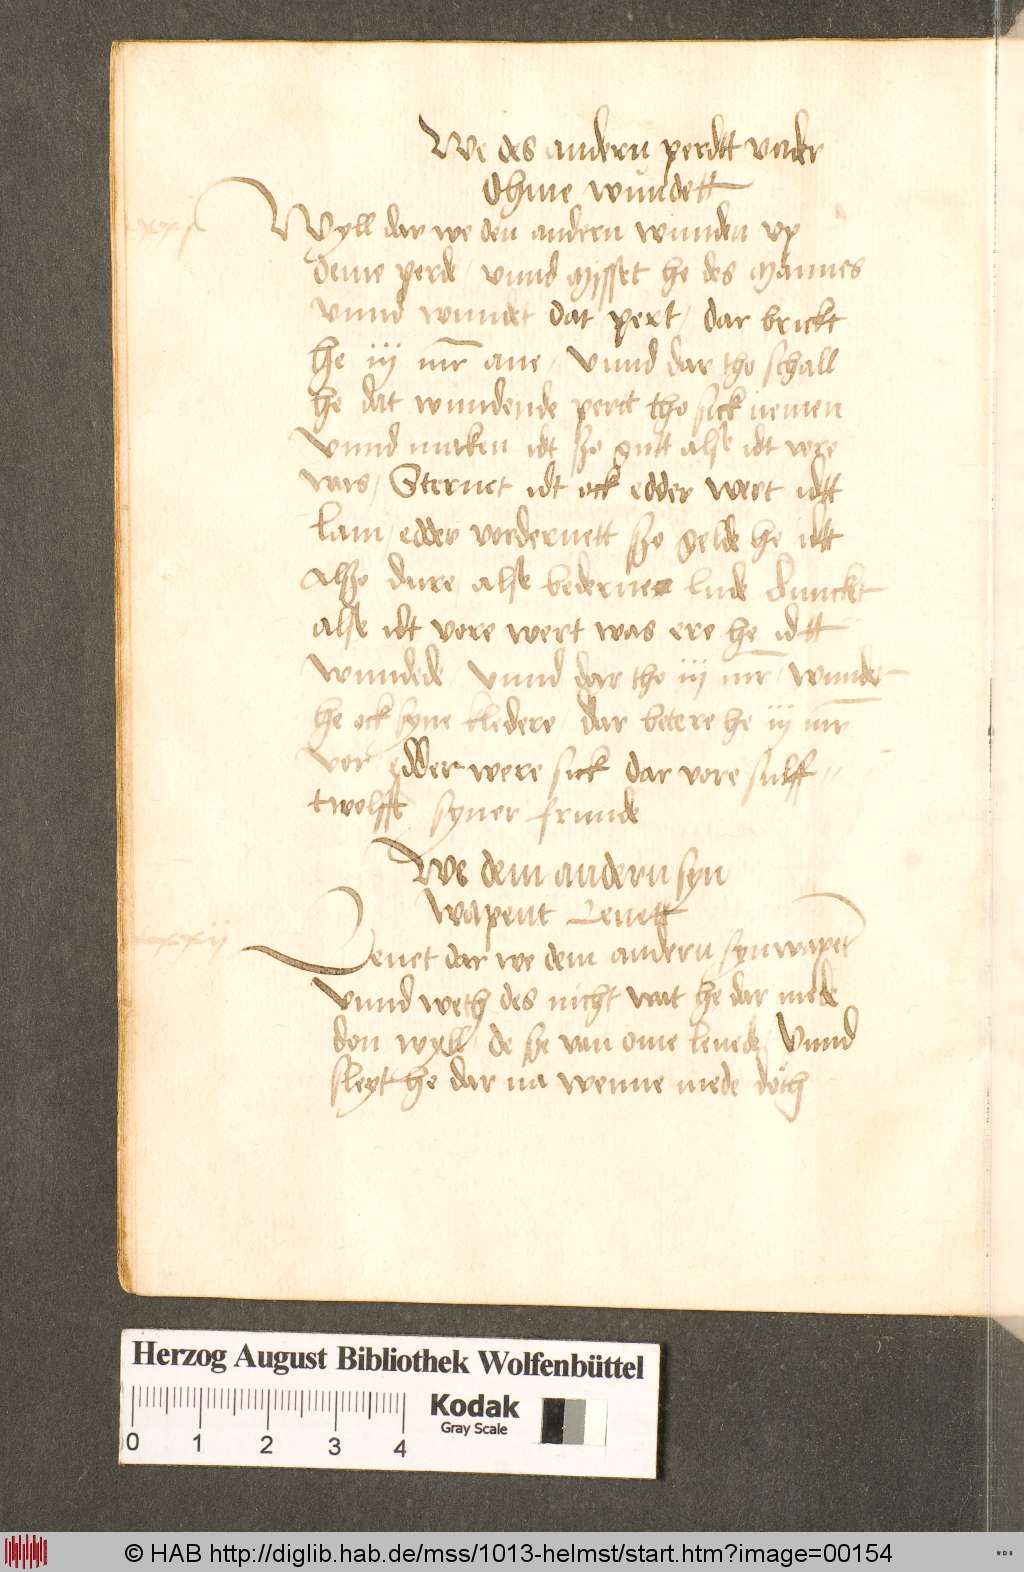 We des andern perdtt vnder
Ohme wundett
lxxxj
Wyll dar we den andern wunden vp
deme perde / vnnd mysset he des mannes
vnnd wundet dat pert / dar brickt
he iij mr ane / vnnd dar tho schall
he dat wundende pertt tho sick nemen
vnnd maken idt szo gutt alse idt vore
was / Sternet idt ock edder wert idtt
lam / edder vordernett szo gelde he idtt
alszo dure / alse bederue lude dunckt
alse idt vore wert was ere he idtt
wundede vnnd dar tho iij mr / wundet
he ock syne kledere / dar betere he iij mr
vor edder were sick dar vore sulff
twolfft syner frunde
We dem andern syn
wapent Lenett
lxxxij
Lenet dar we dem andern syn wapent
vnnd weth des nicht wat he dar mede
don wyll / de he van ome lenede / Vnnd
sleyt he dar na wenne mede doth
Herzog August Bibliothek Wolfenbüttel
Kodak
Gray Scale
0 1 2 3 4
© HAB http://diglib.hab.de/mss/1013-helmst/start.htm?image=00154